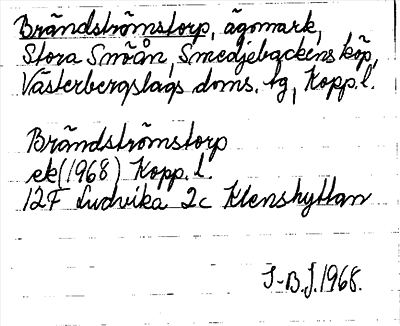 Brändströmstorp, ägomark,
Stora Snöån, Smedjebackens köp,
Västerbergslags doms. tg, Kopp.l.
Brändströmstorp
ek (1968) Kopp. l.
12F Ludvika 2c Klenshyttan
I-B.J. 1968.